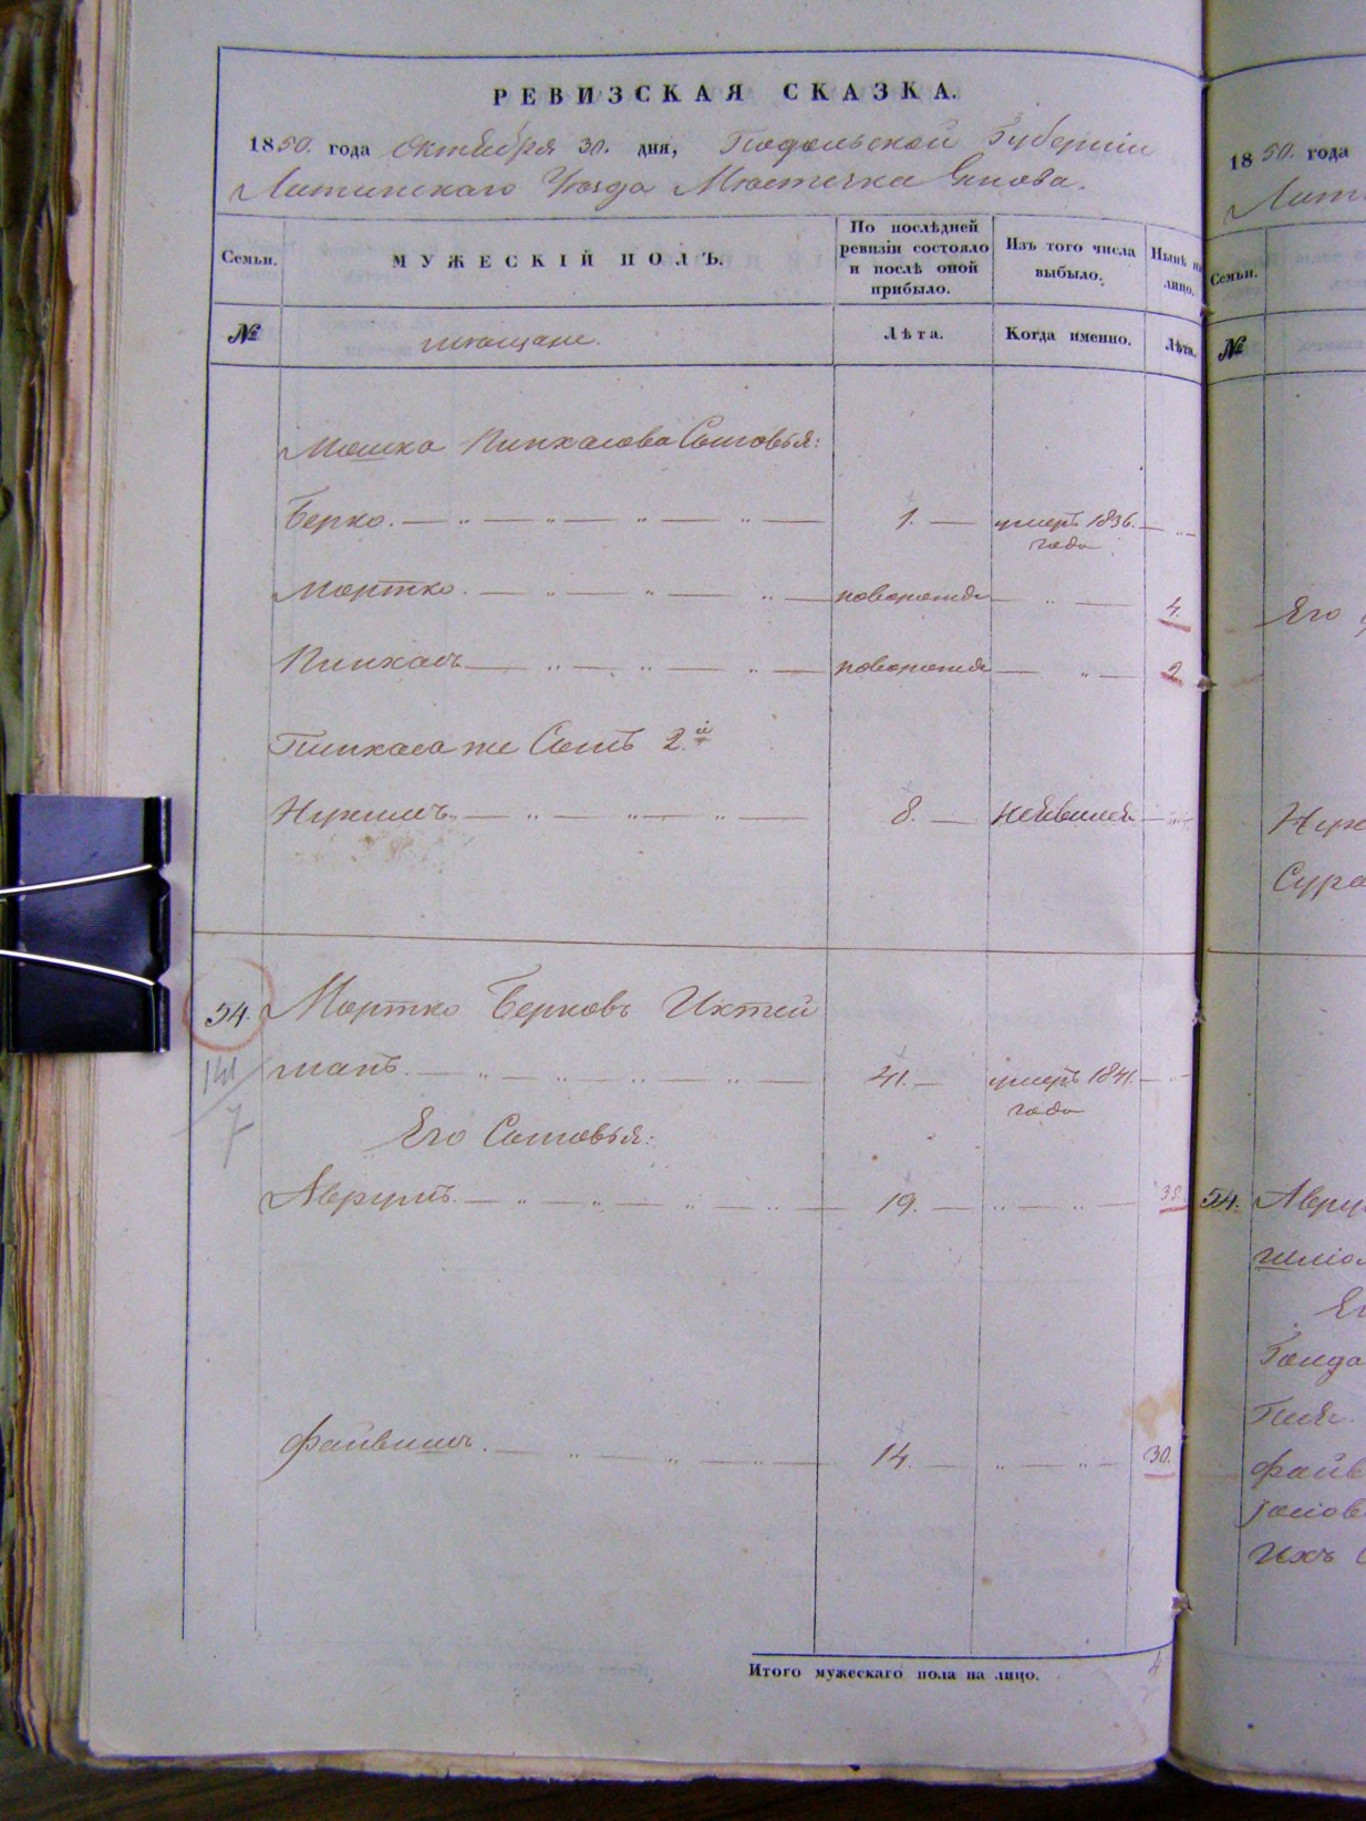 РЕВИЗСКАЯ СКАЗКА.
1850. года Октября 30. дня, Подольской Губернiи
Литинскаго Уѣзда Мѣстечка Янова.
Семьи.
МУЖЕСКIЙ ПОЛЪ.
По послѣдней ревизiи состояло и послѣ оной прибыло.
Изъ того числа выбыло.
Нынѣ на лицо.
№
мѣщане.
Лѣта.
Когда именно.
Лѣта.
Мошка Пинхасова Сыновья:
Берко. 1. умеръ 1836. года
Мортко. новорожден 4.
Пинхасъ новорожден 2
Пинхаса же Сынъ 2.й
Нухимъ 8. неявился
54. Мортко Берковъ Ихтей
манъ. 41. умеръ 1841. года
141
7
Его Сыновья:
Аврумъ. 19. 35.
Файвишъ. 14. 30.
Итого мужескаго пола на лицо. 4
1850. года
Лити
Семьи.
№
Его
Нух
Сура
54. Авру
Ег
Голда
Файв
Ихъ